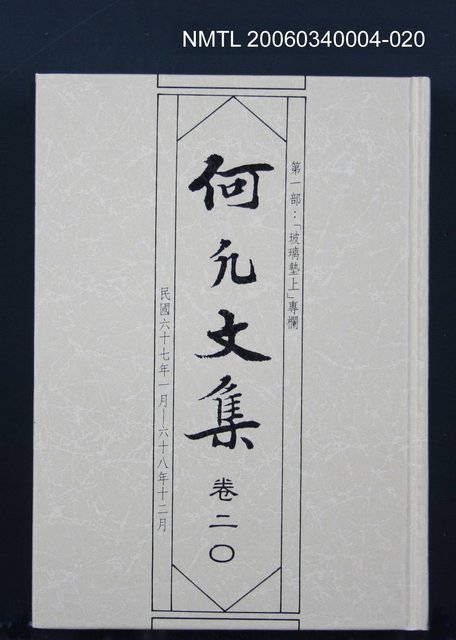 NMTL 20060340004-020
第一部：「玻璃墊上」專欄
何凡文集
卷二〇
民國六十七年一月—六十八年十二月